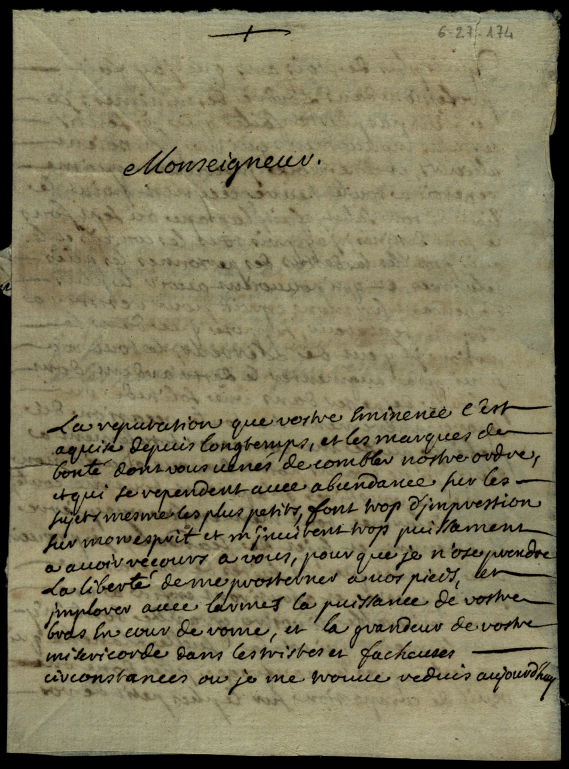 6-27-174
Monseigneur.
La reputation que vostre Eminence s'est
aquise depuis longtemps, et les marques de
bonté dont vous venés de combler nostre ordre,
et qui se rependent avec abundance sur les
sujets mesme les plus petits, font trop d'jmpression
sur mon esprit et m'jncitent trop puissament
a avoir recours a vous, pour que je n'ose prendre
La liberté de me prosterner a vos pieds, et
jmplorer avec larmes la puissance de vostre
bras En cour de rome, et la grandeur de vostre
misericorde dans les tristes et facheuses
circonstances ou je me trouve reduis aujourdhuy